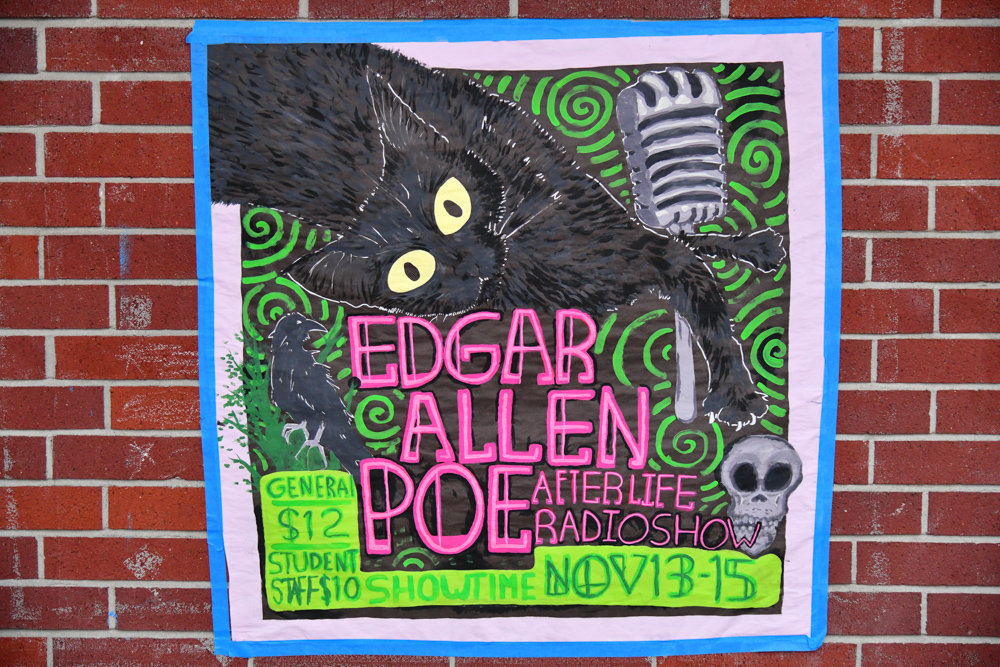 EDGAR
ALLEN
POE
AFTERLIFE
RADIOSHOW
GENERAL
$12
STUDENT
STAFF $10
SHOWTIME
NOV 13-15